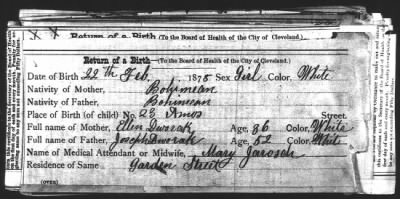 X X Return of a Birth—(To the Board of Health of the City of Cleveland.)
Return of a Birth—(To the Board of Health of the City of Cleveland.)
Date of Birth 22th Feb. 1875 Sex Girl Color, White
Nativity of Mother, Bohimean
Nativity of Father, Bohimean
Place of Birth (of child) No. 23 Amos Street.
Full name of Mother, Ellen Dworak Age, 36 Color, White
Full name of Father, Joseph Dworak Age, 52 Color, White
Name of Medical Attendant or Midwife, Mary Jarosch
Residence of Same Garden Street
(OVER)